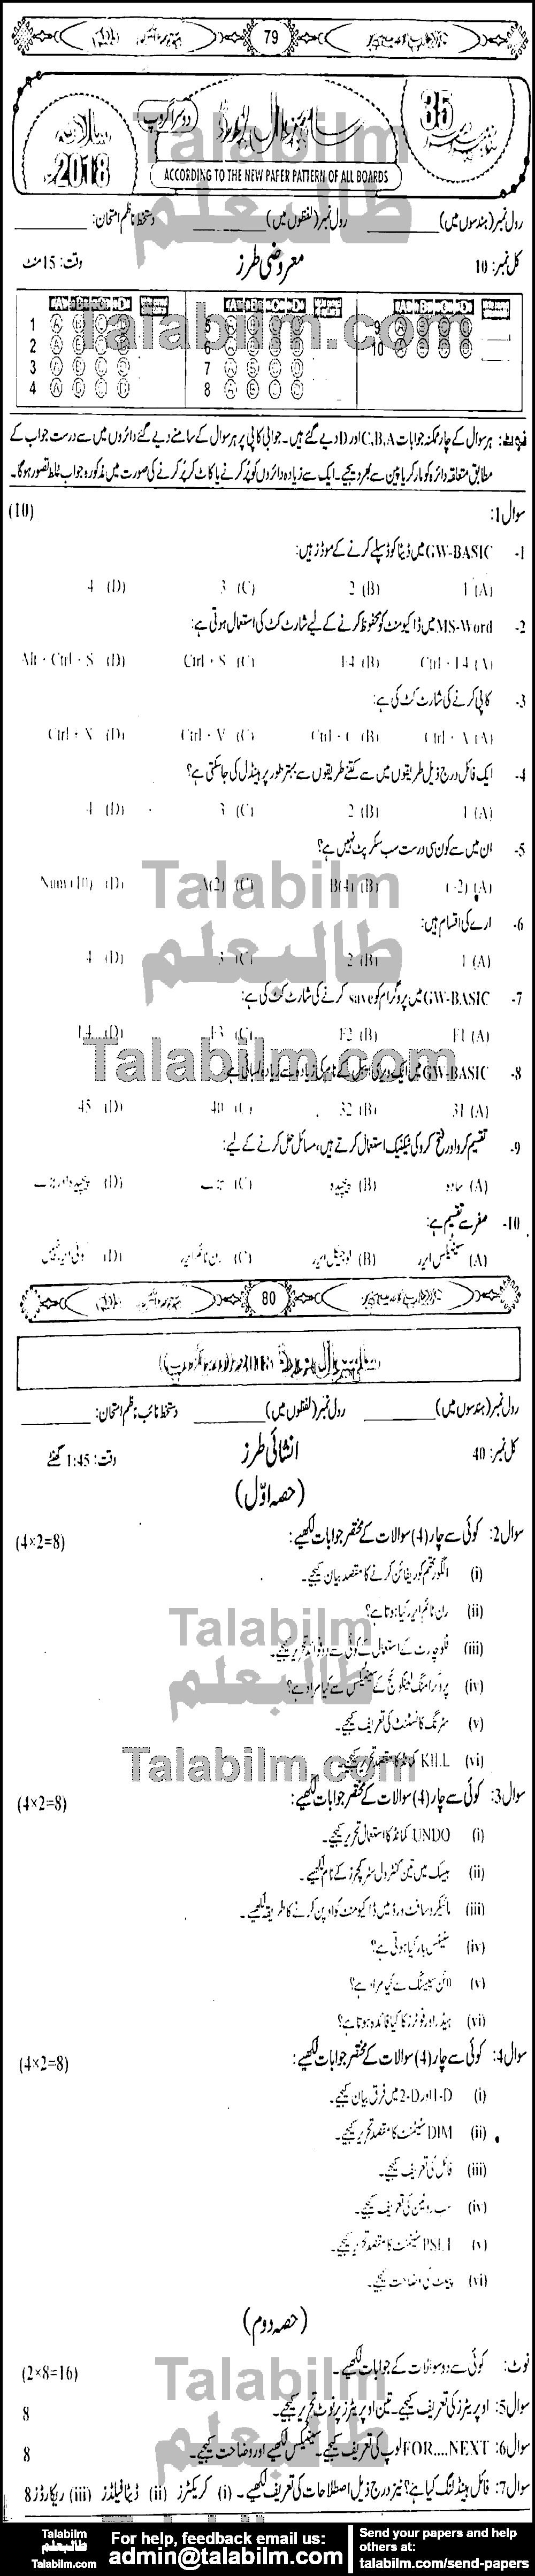 79
35
دوسرا گروپ
سالانہ
2018
ACCORDING TO THE NEW PAPER PATTERN OF ALL BOARDS
Talabilm
طالبعلم
رول نمبر (ہندسوں میں) رول نمبر (لفظوں میں) دستخط ناظم امتحان:
کل نمبر: 10 معروضی طرز وقت: 15 منٹ
Talabilm.com
1 A B C D 5 A B C D 9 A B C D
2 A B C D 6 A B C D 10 A B C D
3 A B C D 7 A B C D
4 A B C D 8 A B C D
نوٹ: ہر سوال کے چار ممکنہ جوابات C,B,A اور D دیے گئے ہیں۔ جوابی کاپی پر ہر سوال کے سامنے دیے گئے دائروں میں سے درست جواب کے
مطابق متعلقہ دائرہ کو مارکر یا پین سے بھر دیجیے۔ ایک سے زیادہ دائروں کو پُر کرنے یا کاٹ کر پُر کرنے کی صورت میں مذکورہ جواب غلط تصور ہوگا۔
سوال 1: (10)
1- GW-BASIC میں ڈیٹا کو ڈسپلے کرنے کے موڈز ہیں:
(A) 1 (B) 2 (C) 3 (D) 4
2- MS-Word میں ڈاکیومنٹ کو محفوظ کرنے کے لیے شارٹ کٹ کی استعمال ہوتی ہے:
(A) Ctrl + F4 (B) F4 (C) Ctrl + S (D) Alt + Ctrl + S
3- کاپی کرنے کی شارٹ کٹ کی ہے:
(A) Ctrl + A (B) Ctrl + C (C) Ctrl + V (D) Ctrl + X
4- ایک فائل درج ذیل طریقوں میں سے کتنے طریقوں سے بہتر طور پر ہینڈل کی جاسکتی ہے؟
(A) 1 (B) 2 (C) 3 (D) 4
5- ان میں سے کون سی درست سب سکرپٹ نہیں ہے؟
(A) (-2) (B) B(4) (C) A(2) (D) Num (10)
Talabilm
طالبعلم
6- ارے کی اقسام ہیں:
(A) 1 (B) 2 (C) 3 (D) 4
7- GW-BASIC میں پروگرام کو save کرنے کی شارٹ کٹ کی ہے:
(A) F1 (B) F2 (C) F3 (D) F4
Talabilm.com
8- GW-BASIC میں ایک ویری ایبل کے نام کی زیادہ سے زیادہ لمبائی ہے:
(A) 31 (B) 32 (C) 40 (D) 45
9- تقسیم کرو اور فتح کرو کی ٹیکنیک استعمال کرتے ہیں، مسائل حل کرنے کے لیے:
(A) سادہ (B) پیچیدہ (C) (D)
10- صفر سے تقسیم ہے:
(A) سینٹیکس ایرر (B) لوجیکل ایرر (C) رن ٹائم ایرر (D) کوئی ایرر نہیں
80
رول نمبر (ہندسوں میں) رول نمبر (لفظوں میں) دستخط نائب ناظم امتحان:
کل نمبر: 40 انشائی طرز وقت: 1:45 گھنٹے
(حصہ اوّل)
سوال 2: کوئی سے چار (4) سوالات کے مختصر جوابات لکھیے: (4×2=8)
(i) الگورتھم کو ریفائن کرنے کا مقصد بیان کیجیے۔
(ii) رن ٹائم ایرر کیا ہوتا ہے؟
Talabilm
(iii) فلو چارٹ کے استعمال کے کوئی سے دو فوائد تحریر کیجیے۔
طالبعلم
(iv) پروگرامنگ لینگوئج کے سینٹیکس سے کیا مراد ہے؟
(v) سٹرنگ کانسٹنٹ کی تعریف کیجیے۔
Talabilm.com
(vi) KILL کمانڈ کا مقصد تحریر کیجیے۔
سوال 3: کوئی سے چار (4) سوالات کے مختصر جوابات لکھیے: (4×2=8)
(i) UNDO کمانڈ کا استعمال تحریر کیجیے۔
(ii) بیسک میں تین کنٹرول سٹرکچرز کے نام لکھیے۔
(iii) مائیکروسافٹ ورڈ میں ڈاکیومنٹ کو اوپن کرنے کا طریقہ لکھیے۔
(iv) سٹیٹس بار کیا ہوتی ہے؟
(v) لائن سپیسنگ سے کیا مراد ہے؟
(vi) ہیڈر اور فوٹرز کا کیا فائدہ ہوتا ہے؟
سوال 4: کوئی سے چار (4) سوالات کے مختصر جوابات لکھیے: (4×2=8)
(i) 1-D اور 2-D میں فرق بیان کیجیے۔
(ii) DIM سٹیٹمنٹ کا مقصد تحریر کیجیے۔
(iii) فائل کی تعریف کیجیے۔
(iv) سب روٹین کی تعریف کیجیے۔
(v) PSET سٹیٹمنٹ کا مقصد تحریر کیجیے۔
(vi) پیلٹ کی وضاحت کیجیے۔
(حصہ دوم)
نوٹ: کوئی سے دو سوالات کے جوابات لکھیے۔ (2×8=16)
Talabilm
سوال 5: اوپریٹرز کی تعریف کیجیے۔ تین اوپریٹرز پر نوٹ تحریر کیجیے۔ 8
طالبعلم
سوال 6: FOR....NEXT لوپ کی تعریف کیجیے۔ سینٹیکس لکھیے اور وضاحت کیجیے۔ 8
سوال 7: فائل ہینڈلنگ کیا ہے؟ نیز درج ذیل اصطلاحات کی تعریف لکھیے۔ (i) کریکٹرز (ii) ڈیٹا فیلڈز (iii) ریکارڈز 8
Talabilm
طالبعلم
Talabilm.com
For help, feedback email us:
admin@talabilm.com
Send your papers and help
others at:
talabilm.com/send-papers